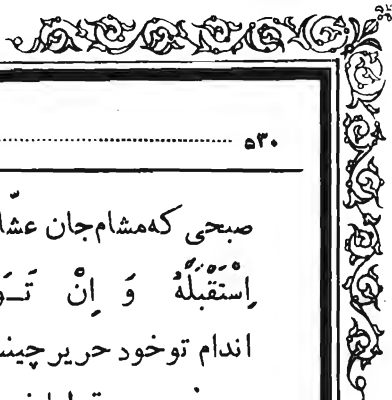 ۵۳۰
صبحی که مشام جان عشّا
اِسْتَقْبَلَهُ وَ اِنْ تَـوَ
اندام تو خود حریر چینـ